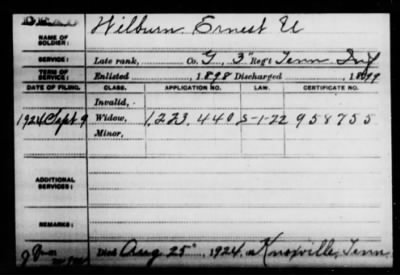 NAME OF SOLDIER: Wilburn Ernest U
SERVICE: Late rank, Co. G, 3" Reg't Tenn Inf
TERM OF SERVICE: Enlisted 1898 Discharged 1899
DATE OF FILING. CLASS. APPLICATION NO. LAW. CERTIFICATE NO.
Invalid,
1924 Sept 9 Widow, 1,223,440 S-1-22 958755
Minor,
ADDITIONAL SERVICES:
REMARKS:
Died Aug 25" 1924, Knoxville, Tenn